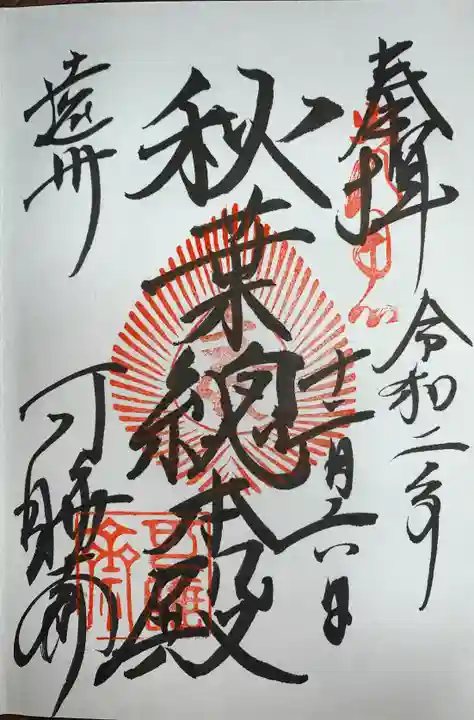 奉拝
令和二年
十二月六日
秋葉總本殿
遠州
可睡齋